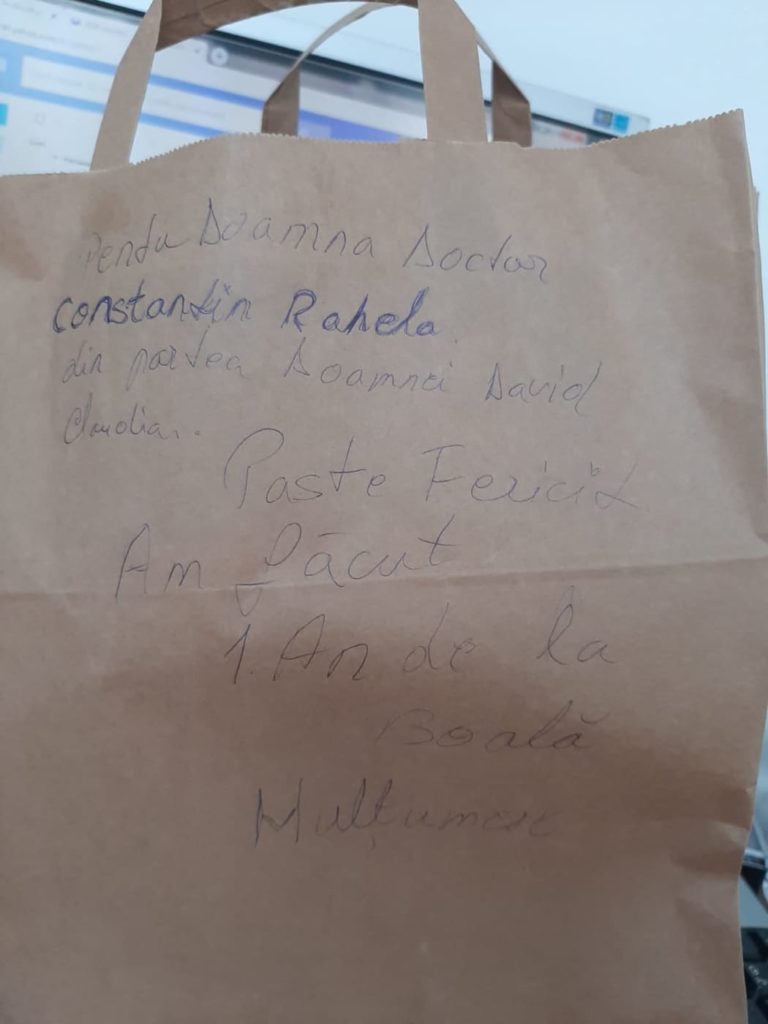 Pentu Doamna Doctor
Constantin Rahela
din partea Doamnei David
Claudia..
Paste Fericit
Am făcut
1. An de la
Boală
Mulțumesc